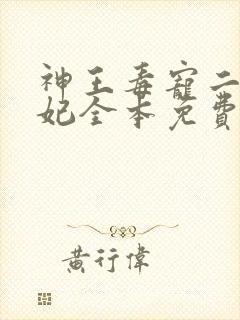 神王毒寵二
妃全本免費
黄行偉